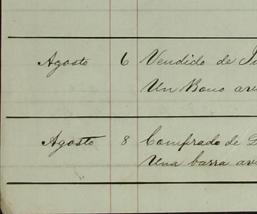 Agosto 6 Vendido de
Un Bono
Agosto 8 Comprado de
Una barra